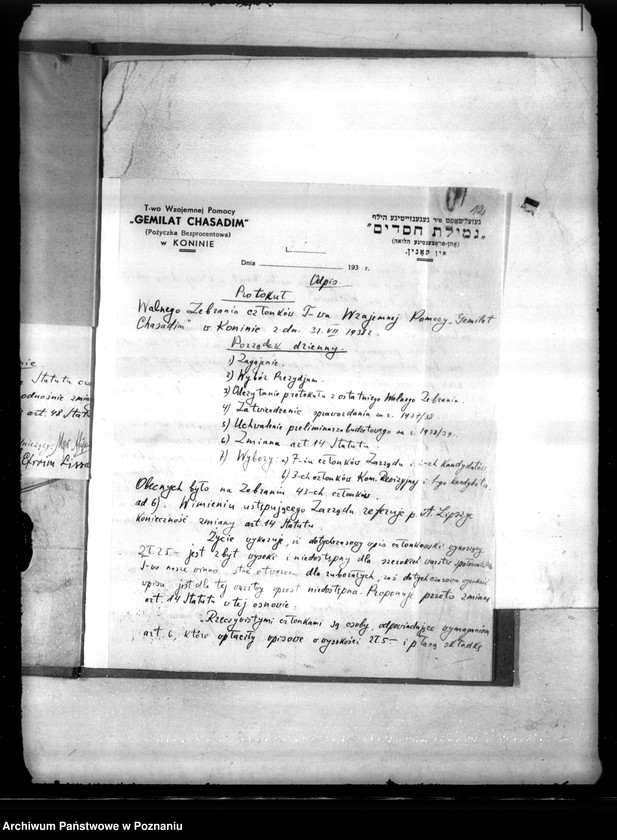 12
T-wo Wzajemnej Pomocy
„GEMILAT CHASADIM”
(Pożyczka Bezprocentowa)
w KONINIE
געזעלשאפט פיר געגענזייטיגע הילף
„גמילת חסדים”
(אהן-פראצענטיגע הלואה)
אין קאנין.
Dnia 193 r.
Odpis.
Protokuł
Walnego Zebrania członków T-wa Wzajemnej Pomocy „Gemilat
Chasadim” w Koninie z dn. 31.VII 1938 r.
Porządek dzienny.
1) Zagajenie.
2) Wybór Prezydjum.
3) Odczytanie protokułu z ostatniego Walnego Zebrania.
4) Zatwierdzenie sprawozdania za r. 1937/38.
5) Uchwalenie preliminarza budżetowego na r. 1938/39.
6) Zmiana art. 14 Statutu.
7) Wybory: a) 7-iu członków Zarządu i kandydatów,
b) 3-ch członków Kom. Rewizyjnej i 1-go kandydata.
Obecnych było na Zebraniu 43-ch członków.
ad 6). W imieniu ustępującego Zarządu referuje p. A. Lipszyc
konieczność zmiany art. 14 Statutu
Życie wykazuje, iż dotychczasowy wpis członkowski wynoszący
Zł. 25.— jest zbyt wysoki i niedostępny dla szerokich warstw
T-wo nasze winno stać otworem dla zubożałych, zaś dotychczasowa wysokość
wpisu jest dla tej warstwy wprost niedostępna. Proponuje przeto zmianę
art. 14 Statutu w tej osnowie:
„Rzeczywistymi członkami są osoby, odpowiadające wymaganiom
art. 6, które opłaciły wpisowe w wysokości Zł. 5.— i płacą składkę
Statutu
odnośnie zmiany
art. 48 Statutu
Archiwum Państwowe w Poznaniu